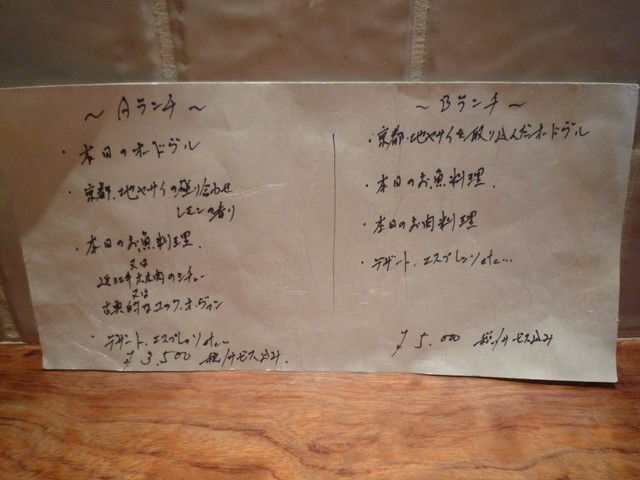 ～ Aランチ ～
・本日のオードブル
・京都.地ヤサイの盛り合わせ
レモンの香り
・本日のお魚料理.
又は
近江牛ホホ肉のシチュー
又は
古典的なコック.オ.ヴァン
・デザート.エスプレッソetc…
¥3,500 税/サービス込み.
～ Bランチ ～
・京都.地ヤサイを取り込んだオードブル
・本日のお魚料理.
・本日のお肉料理
・デザート.エスプレッソetc…
¥5,000 税/サービス込み